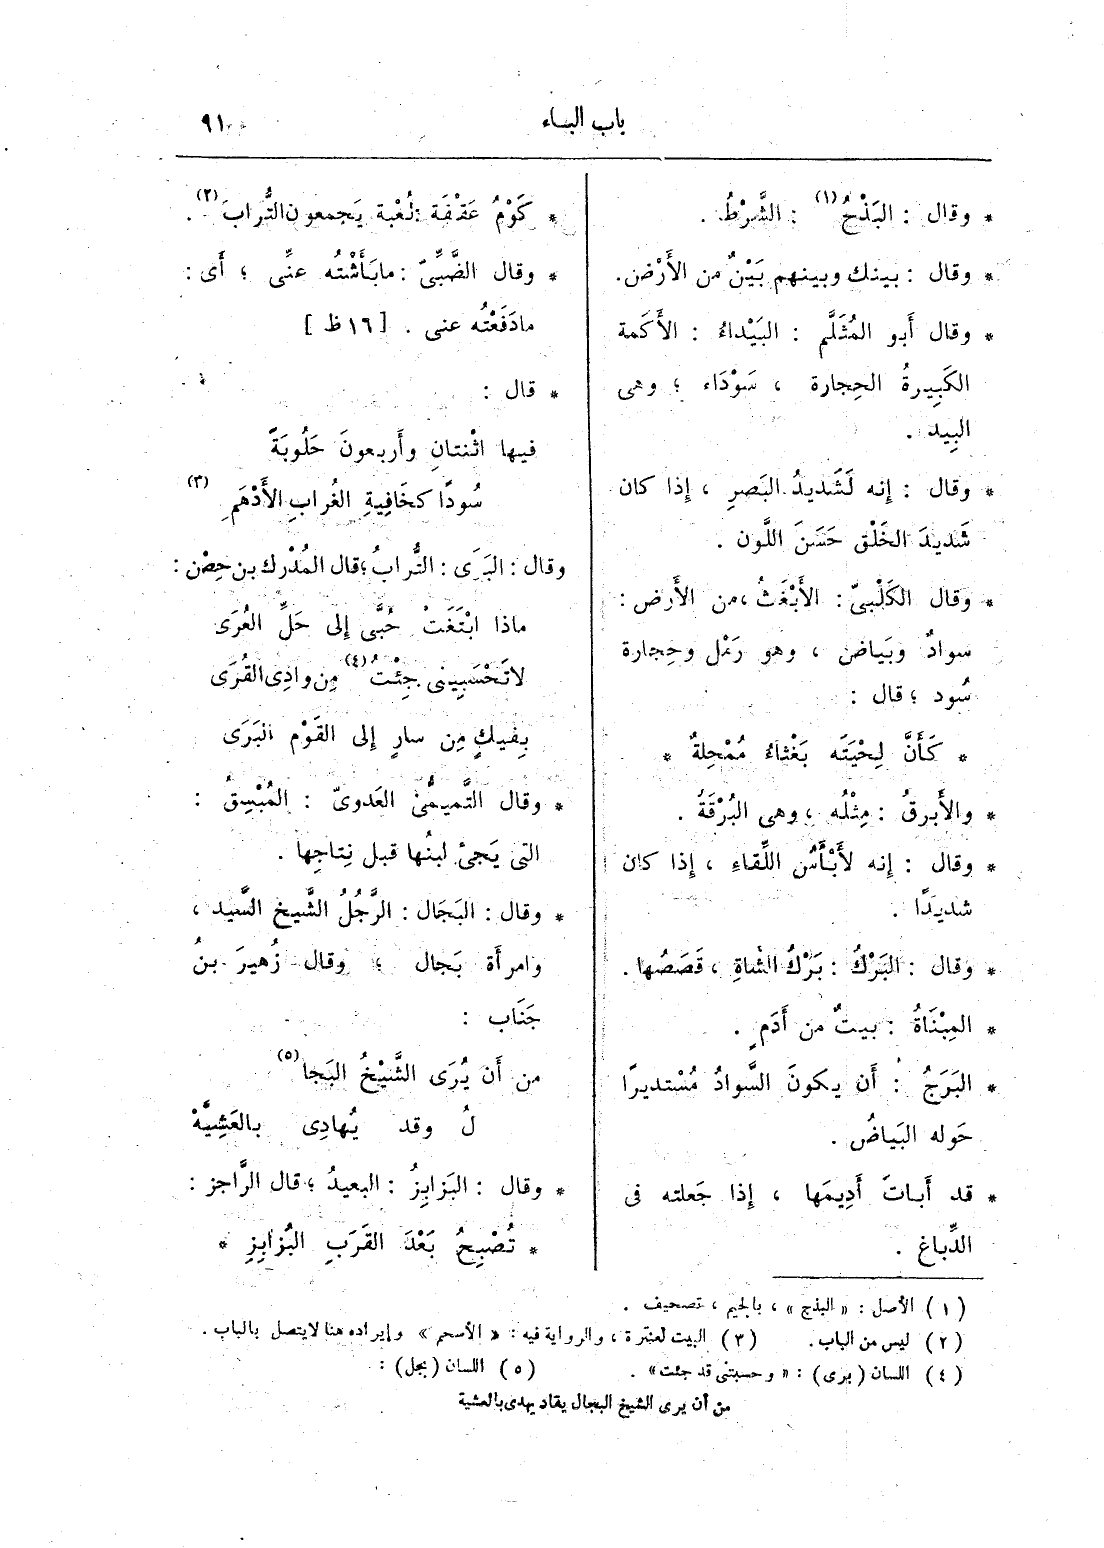 باب الباء
٩١
* وقال : البَذْحُ (١) : الشَّرْطُ .
* وقال : بينك وبينهم بَيْنٌ من الأَرْض .
* وقال أَبو المُثَلَّم : البَيْداءُ : الأَكَمة
الكَبِيرةُ الحِجارة ، سَوْدَاء ؛ وهى
البِيد .
* وقال : إِنه لَشَديدُ البَصرِ ، إِذا كان
شَديدَ الخَلْق حَسَنَ اللَّون .
* وقال الكَلْبىّ : الأَبْغَثُ ، من الأَرض :
سوادٌ وبَياض ، وهو رَمْل وحِجارة
سُود ؛ قال :
* كَأَنَّ لِحْيَتَه بَغْثاءُ مُمْحِلةٌ *
* والأَبرقُ : مِثْلُه ، وهى البُرْقَةُ .
* وقال : إِنه لأَبْأَسُ اللِّقاءِ ، إِذا كان
شديدًا .
* وقال : البَرْكُ : بَرْكُ الشاةِ ، قَصَصُها .
* المِبْنَاةُ : بيتٌ من أَدَمٍ .
* البَرَجُ : أَن يكونَ السَّوادُ مُسْتديرًا
حَوله البَياضُ .
* قد أَباتَ أَدِيمَها ، إِذا جَعلته فى
الدِّباغ .
* كَوْمُ عَقِقَة : لُعْبة يَجمعون التُّرابَ (٢) .
* وقال الضَّبِّىّ : مابَأَشْتُه عنِّى ؛ أَى :
مادَفَعْتُه عنى . [ ١٦ ظ ]
* قال :
فيها اثْنتانِ وأَربعونَ حَلُوبَةً
سُودًا كخَافِيةِ الغُرابِ الأَدْهَمِ (٣)
وقال : البَرَى : التُّرابُ ؛ قال المُدْرك بن حِصْن :
ماذا ابْتَغَتْ حُبَّى إِلى حَلِّ العُرَى
لاتَحْسَبِينى جِئْتُ (٤) مِن وادِى القُرَى
بِفيكِ مِن سارٍ إِلى القَوْم البَرَى
* وقال التَّميمىّ العَدوىّ : المُبْسِقُ :
التى يَجئ لبنُها قبل نِتاجِها .
* وقال : البَجَال : الرَّجُلُ الشَّيخ السَّيد ،
وامرأَة بَجال ؛ وقال زُهيرَ بنُ
جَنَاب :
من أَن يُرَى الشَّيْخُ البَجا (٥)
لُ وقد يُهادِى بالعَشِيَّهْ
* وقال : البَزابِزُ : البعيدُ ؛ قال الرَّاجز :
* تُصْبِحُ بَعْدَ القَرَبِ البُزابِزِ *
(١) الأصل : « البذج » ، بالجيم ، تصحيف .
(٢) ليس من الباب . (٣) البيت لعنترة ، والرواية فيه : « الأسحم » وإيراده هنا لايتصل بالباب .
(٤) اللسان (برى) : « وحسبتنى قد جئت » . (٥) اللسان (بجل) :
من أن يرى الشيخ البجال يقاد يهدى بالعشية